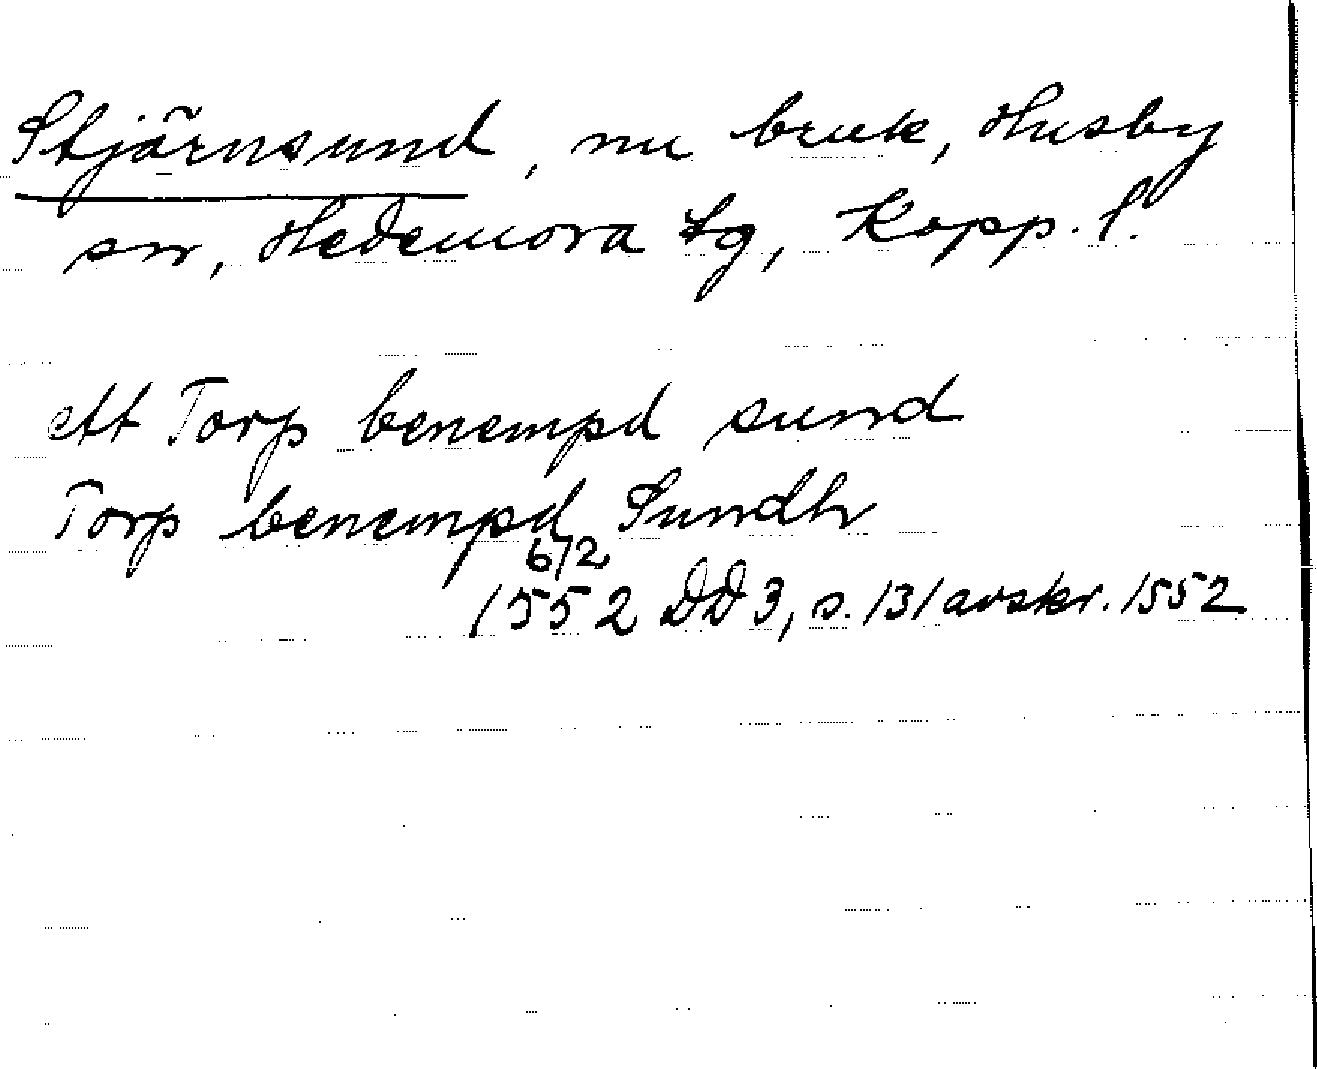 Stjärnsund, nu bruk, Husby
sn, Hedemora tg, Kopp. l.
ett Torp benempd sund
Torp benempd Sundh
6/2
1552 DD 3, s. 131 avskr. 1552